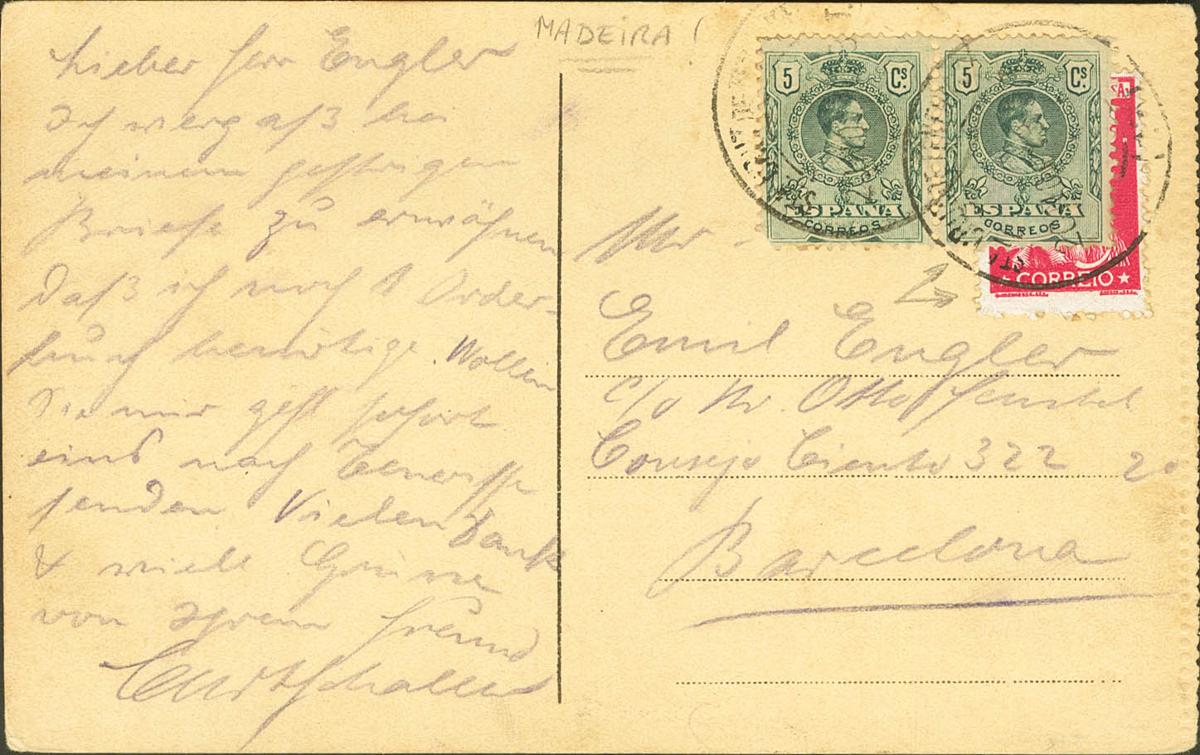 MADEIRA
Lieber Herr Engler
Ich vergaß bei
meinem gestrigen
Briefe zu erwähnen
daß ich noch 1 Order-
buch benötige. Wollen
Sie mir gefl sofort
eins nach Teneriffe
senden Vielen Dank
& viele Grüsse
von Ihrem Freund
5 Cs.
ESPAÑA
CORREOS
5 Cs.
ESPAÑA
CORREOS
CORREIO
Mr.
Emil Engler
c/o Mr. Otto
Consejo Ciento 322 20
Barcelona